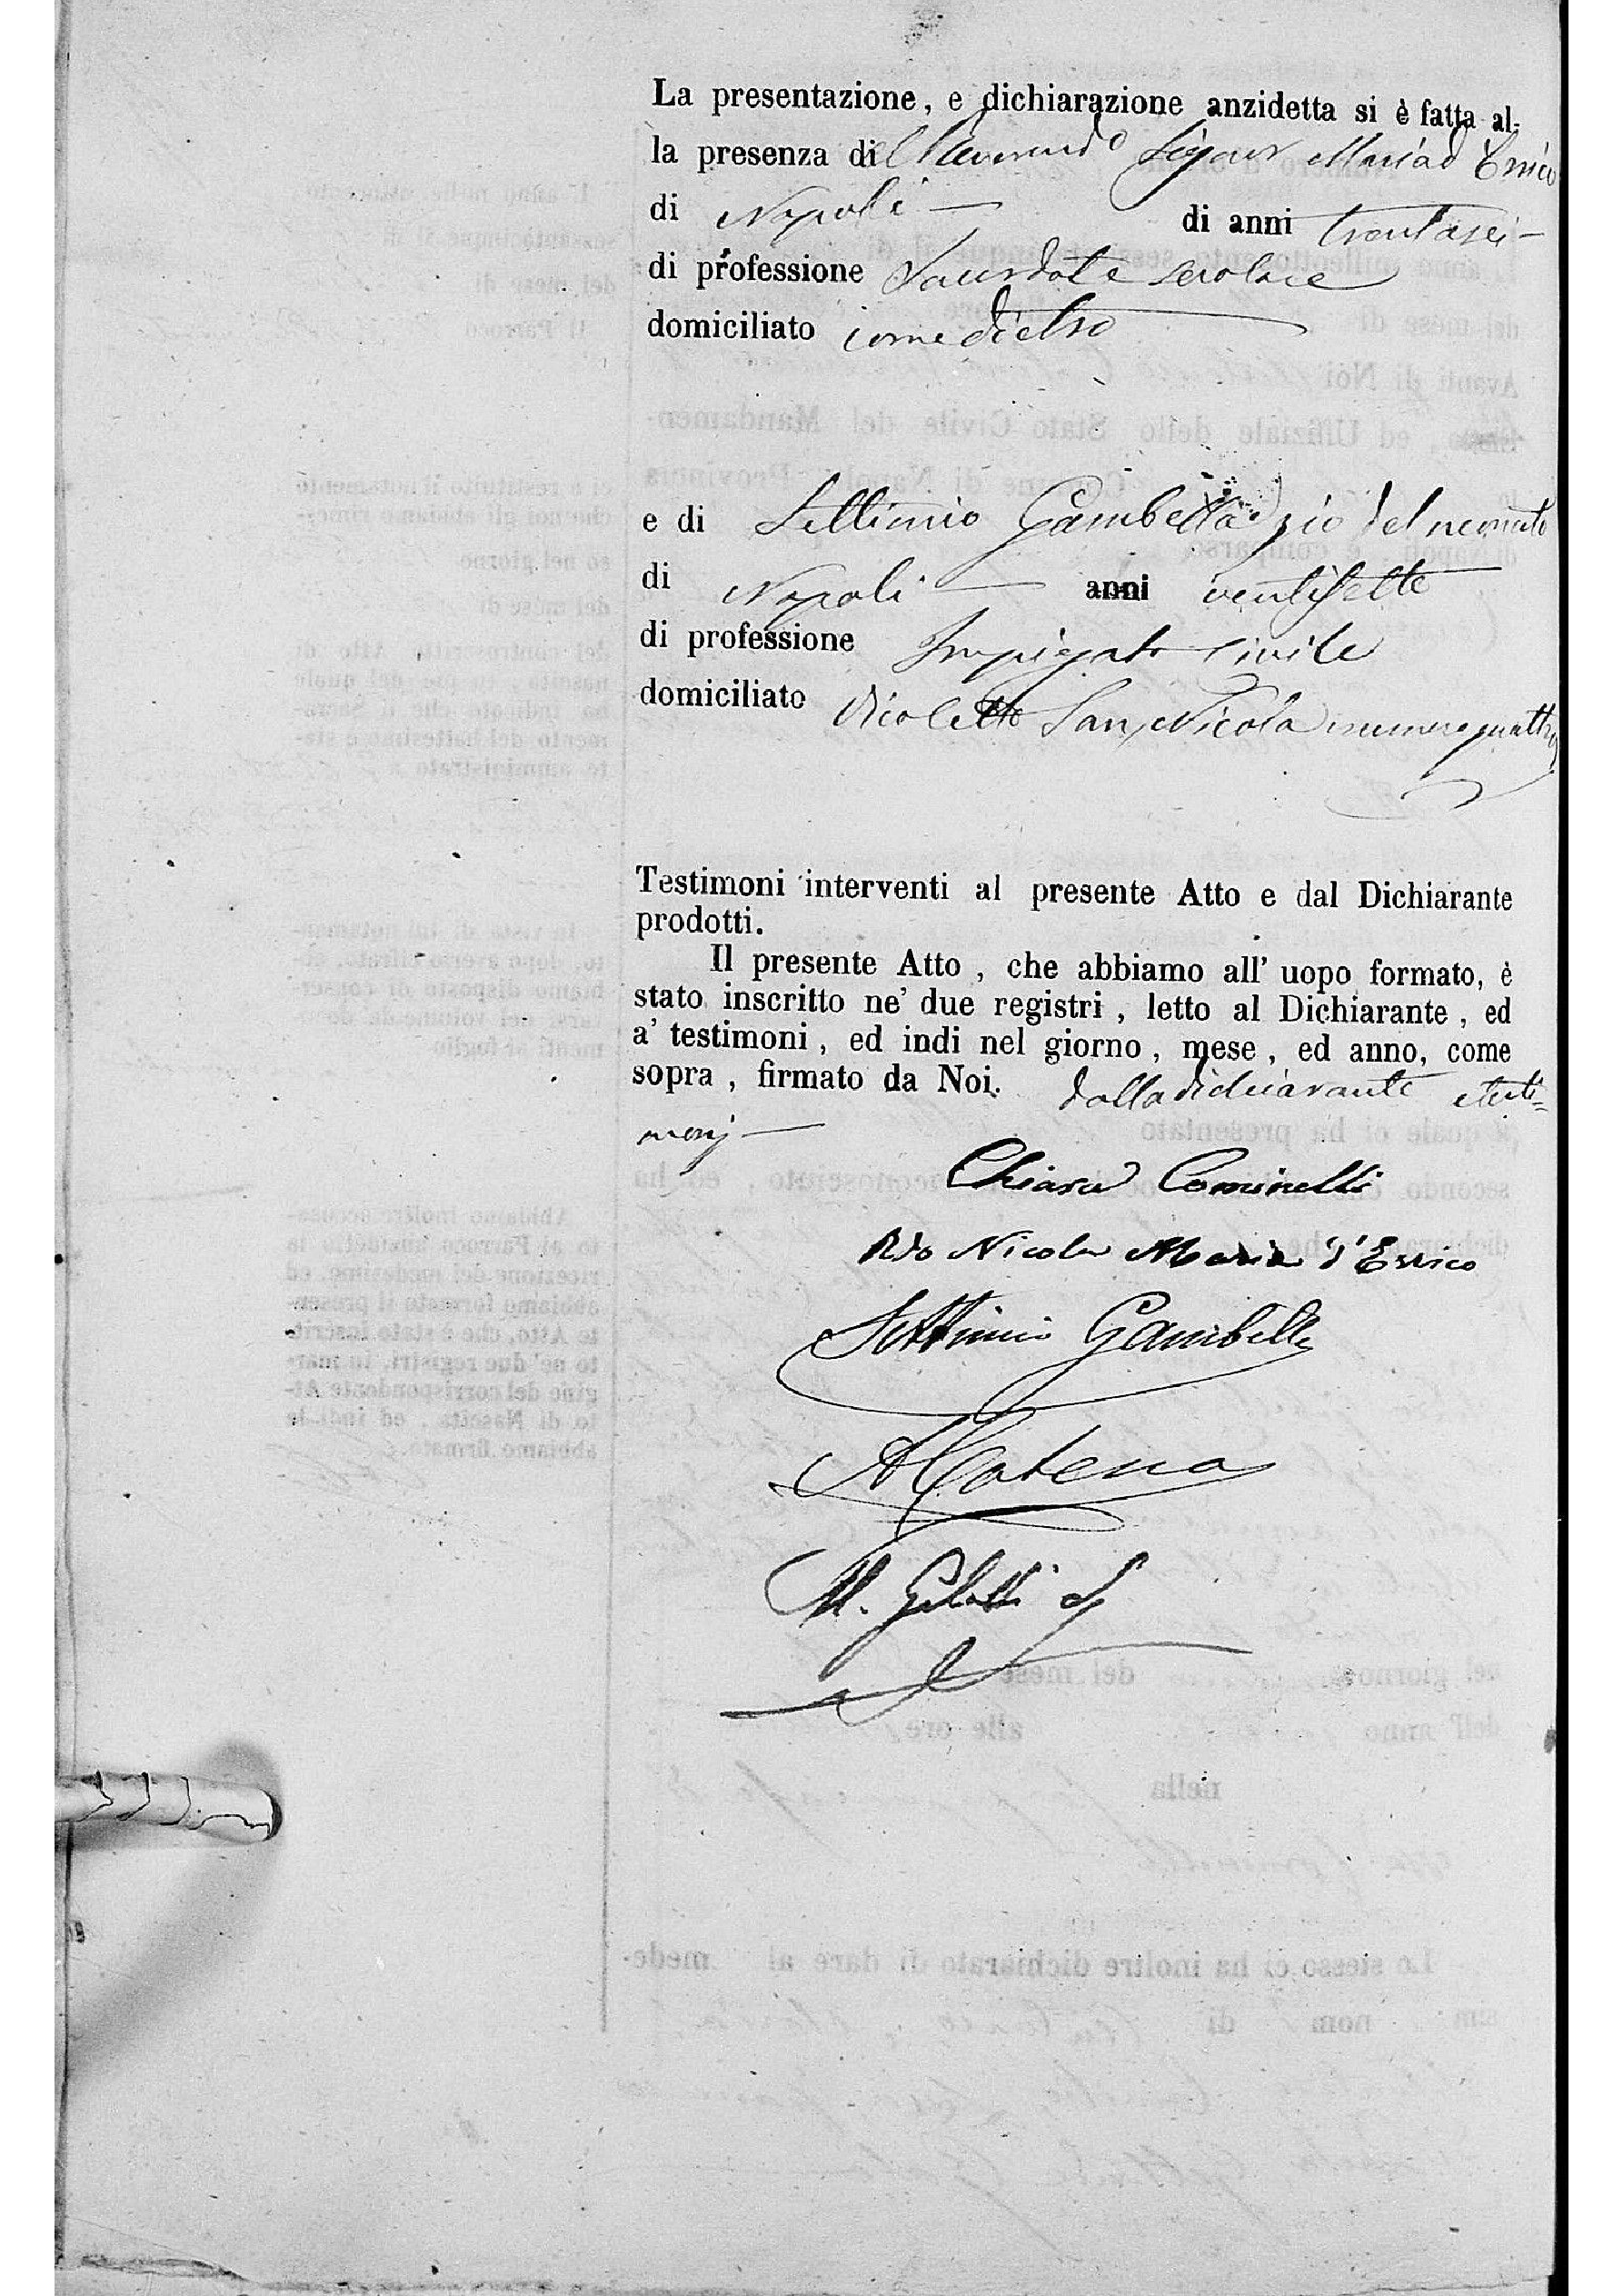 La presentazione, e dichiarazione anzidetta si è fatta al-
la presenza del Reverendo Signor Maria d'Errico
di Napoli — di anni trentasei —
di professione Sacerdote secolare
domiciliato come dietro
e di Settimio Gambella zio del neonato
di Napoli — anni ventisette
di professione Impiegato Civile
domiciliato Vicoletto San Nicola numero quattro
Testimoni interventi al presente Atto e dal Dichiarante
prodotti.
Il presente Atto, che abbiamo all' uopo formato, è
stato inscritto ne' due registri, letto al Dichiarante, ed
a' testimoni, ed indi nel giorno, mese, ed anno, come
sopra, firmato da Noi. dalla dichiarante e testi=
monj —
Chiara Cominelli
Rdo Nicola Maria d'Errico
Settimio Gambella
A Catena
M.